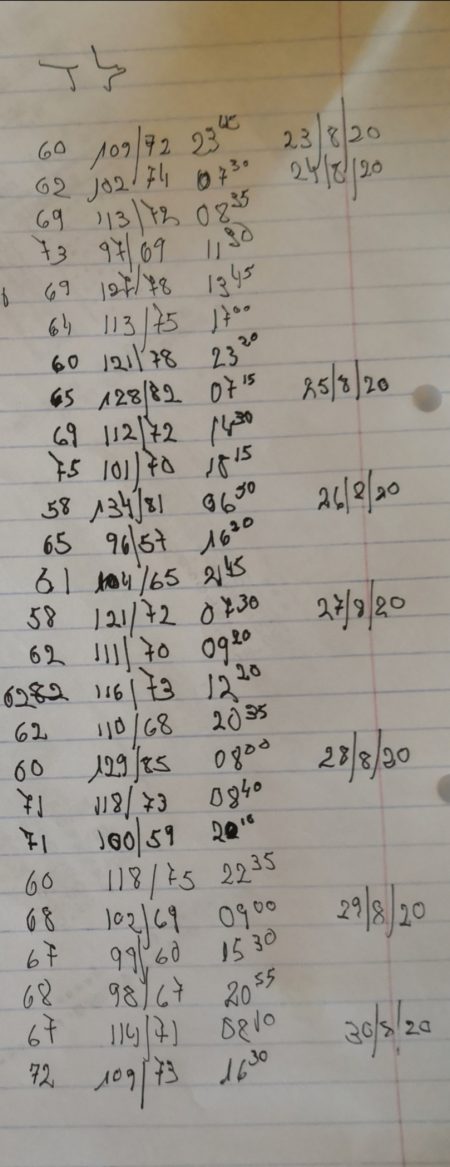 60 109/72 23⁴⁵ 23/8/20
62 102/74 07³⁰ 24/8/20
69 113/72 08³⁵
73 97/69 11³⁰
69 127/78 13⁴⁵
64 113/75 17⁰⁰
60 121/78 23²⁰
65 128/82 07¹⁵ 25/8/20
69 112/72 14³⁰
75 101/70 18¹⁵
58 134/81 06⁵⁰ 26/8/20
65 96/57 16²⁰
61 104/65 21⁴⁵
58 121/72 07³⁰ 27/8/20
62 111/70 09²⁰
6282 116/73 12²⁰
62 110/68 20³⁵
60 129/85 08⁰⁰ 28/8/20
71 118/73 08⁴⁰
71 100/59
60 118/75 22³⁵
68 102/69 09⁰⁰ 29/8/20
67 99/60 15³⁰
68 98/67 20⁵⁵
67 114/71 08¹⁰ 30/8/20
72 109/73 16³⁰